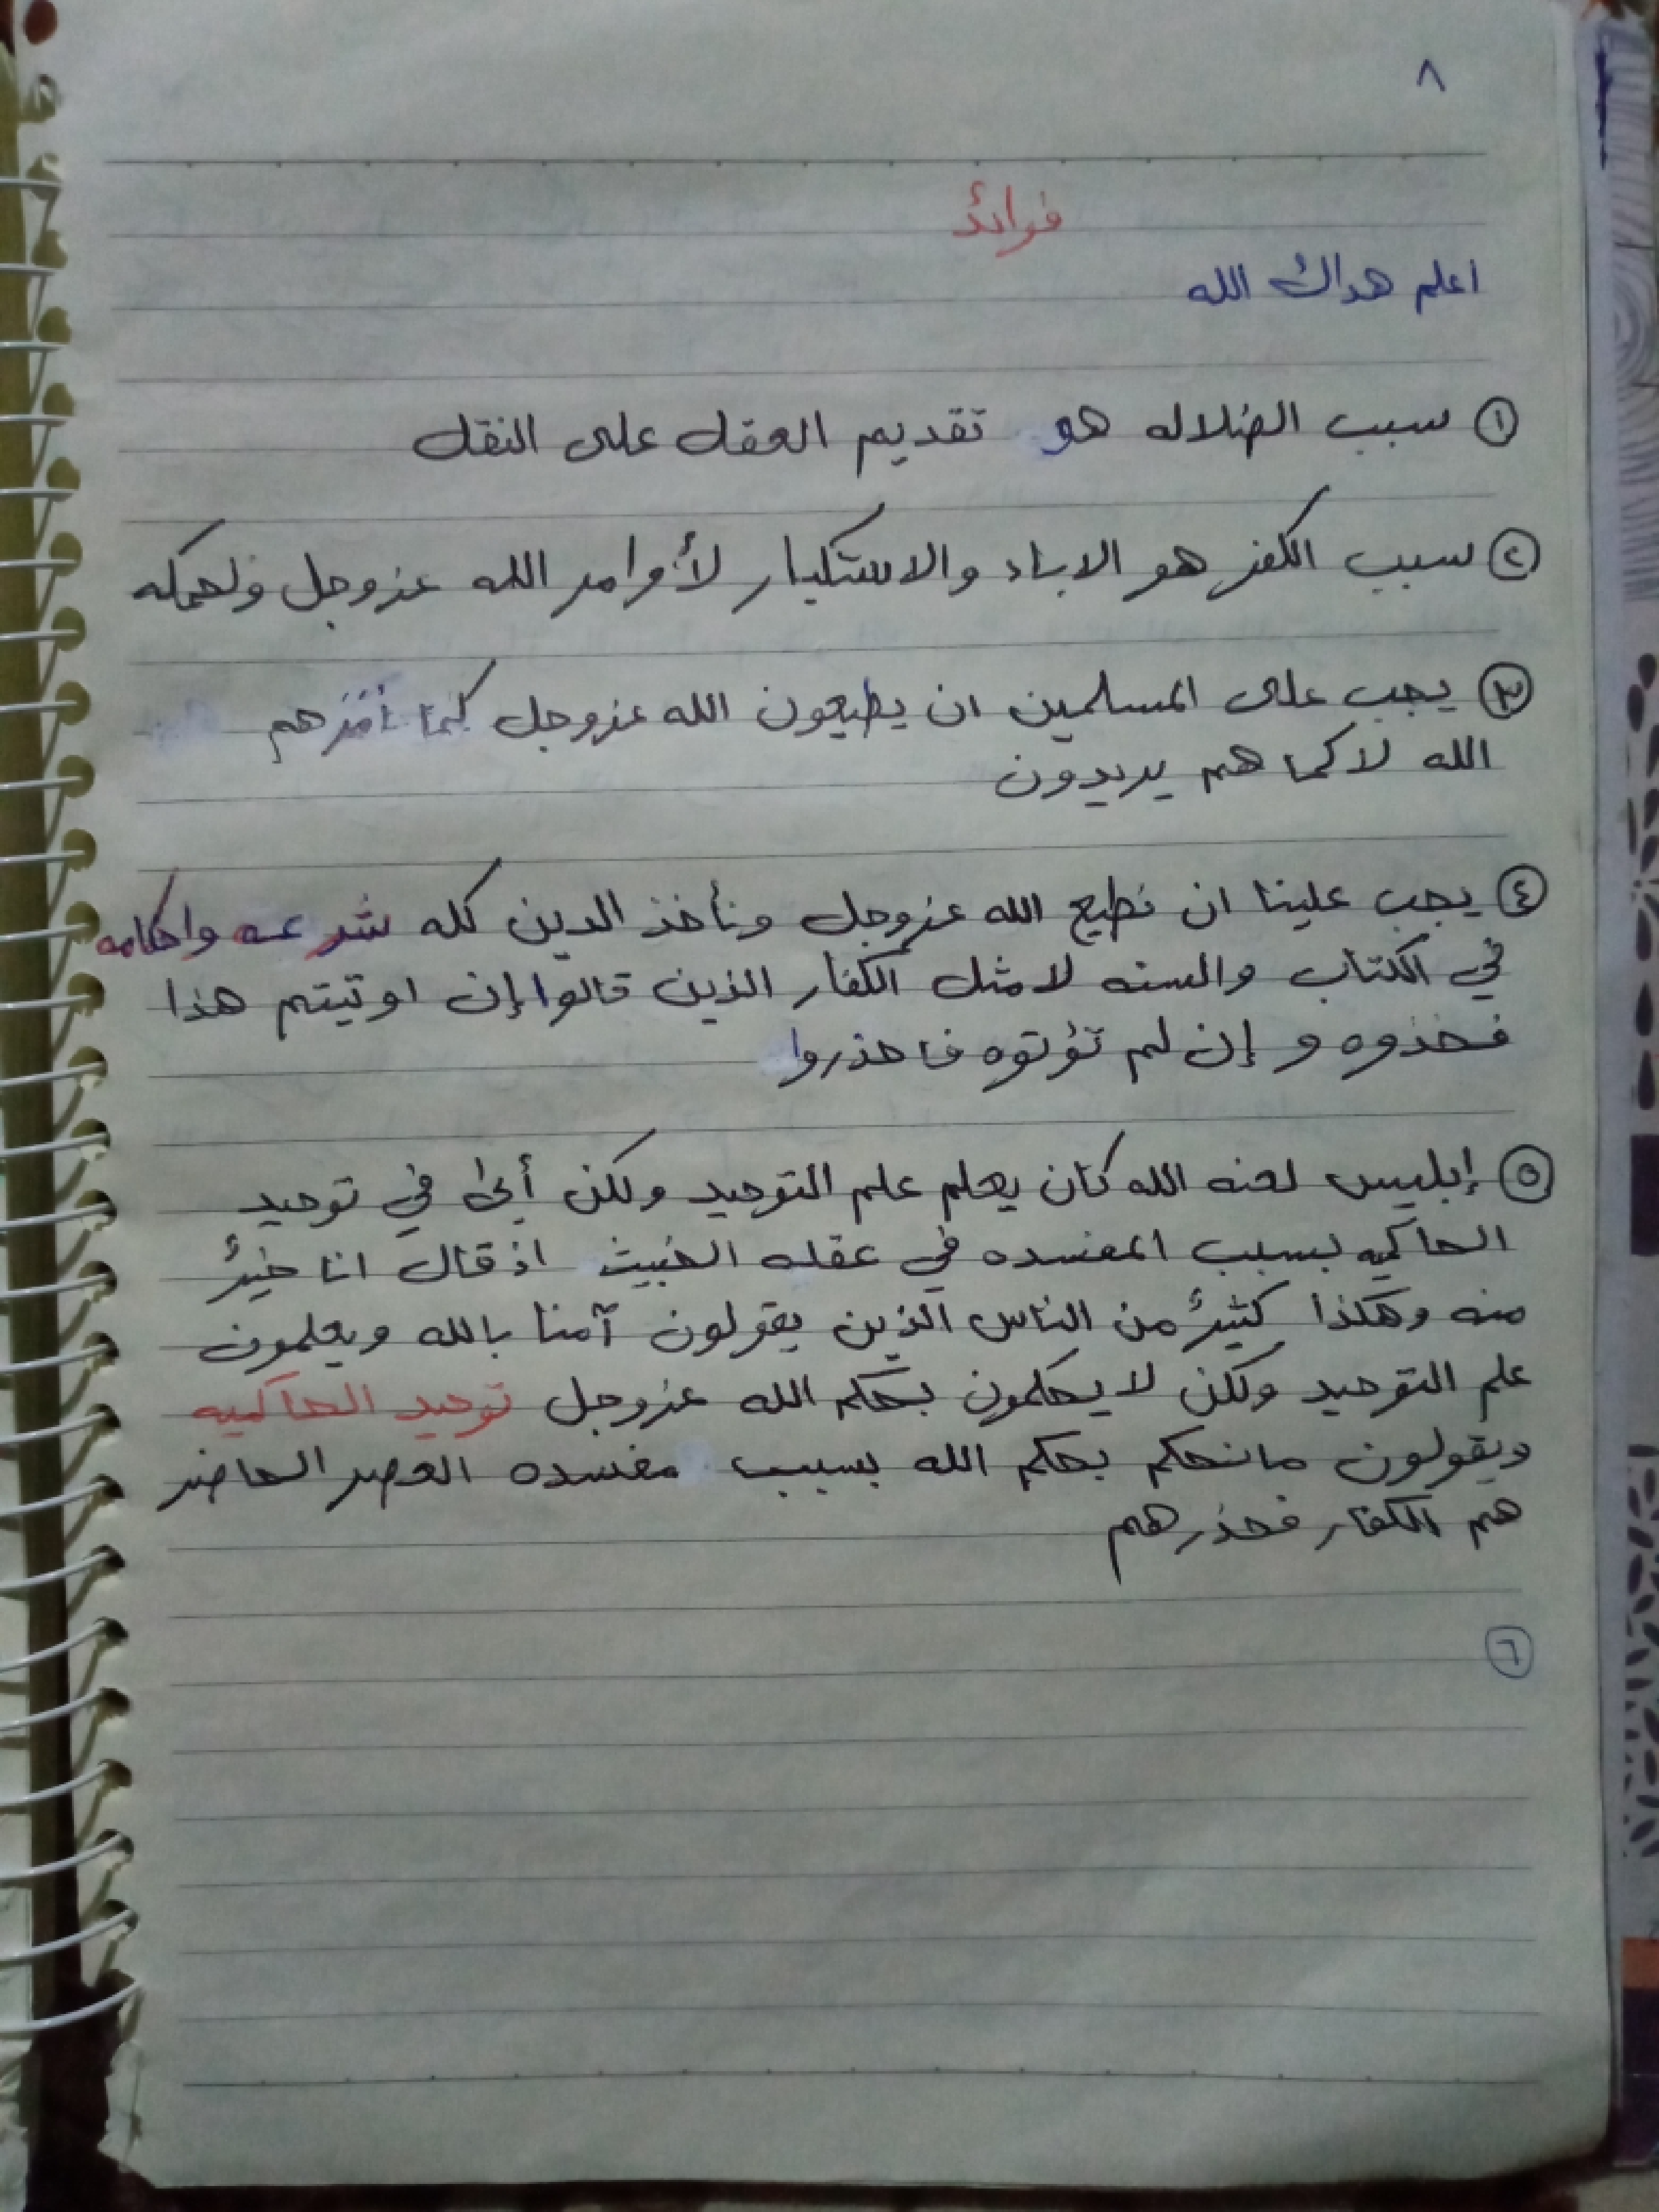 ٨
فوائد
اعلم هداك الله
١ سبب الضلاله هو تقديم العقل على النقل
٢ سبب الكفر هو الاباء والاستكبار لأوامر الله عزوجل ولحكمه
٣ يجب على المسلمين ان يطيعون الله عزوجل كما أمرهم
الله لا كما هم يريدون
٤ يجب علينا ان نطيع الله عزوجل ونأخذ الدين كله شرعه واحكامه
في الكتاب والسنه لا مثل الكفار الذين قالوا إن اوتيتم هذا
فخذوه و إن لم تؤتوه فاحذروا
٥ إبليس لعنه الله كان يعلم علم التوحيد ولكن أبى في توحيد
الحاكميه بسبب المفسده في عقله الخبيث اذ قال انا خيرٌ
منه وهكذا كثيرٌ من الناس الذين يقولون آمنا بالله ويعلمون
علم التوحيد ولكن لا يحكمون بحكم الله عزوجل توحيد الحاكميه
ويقولون مانحكم بحكم الله بسبب مفسده العصر الحاضر
هم الكفار فحذرهم
٦